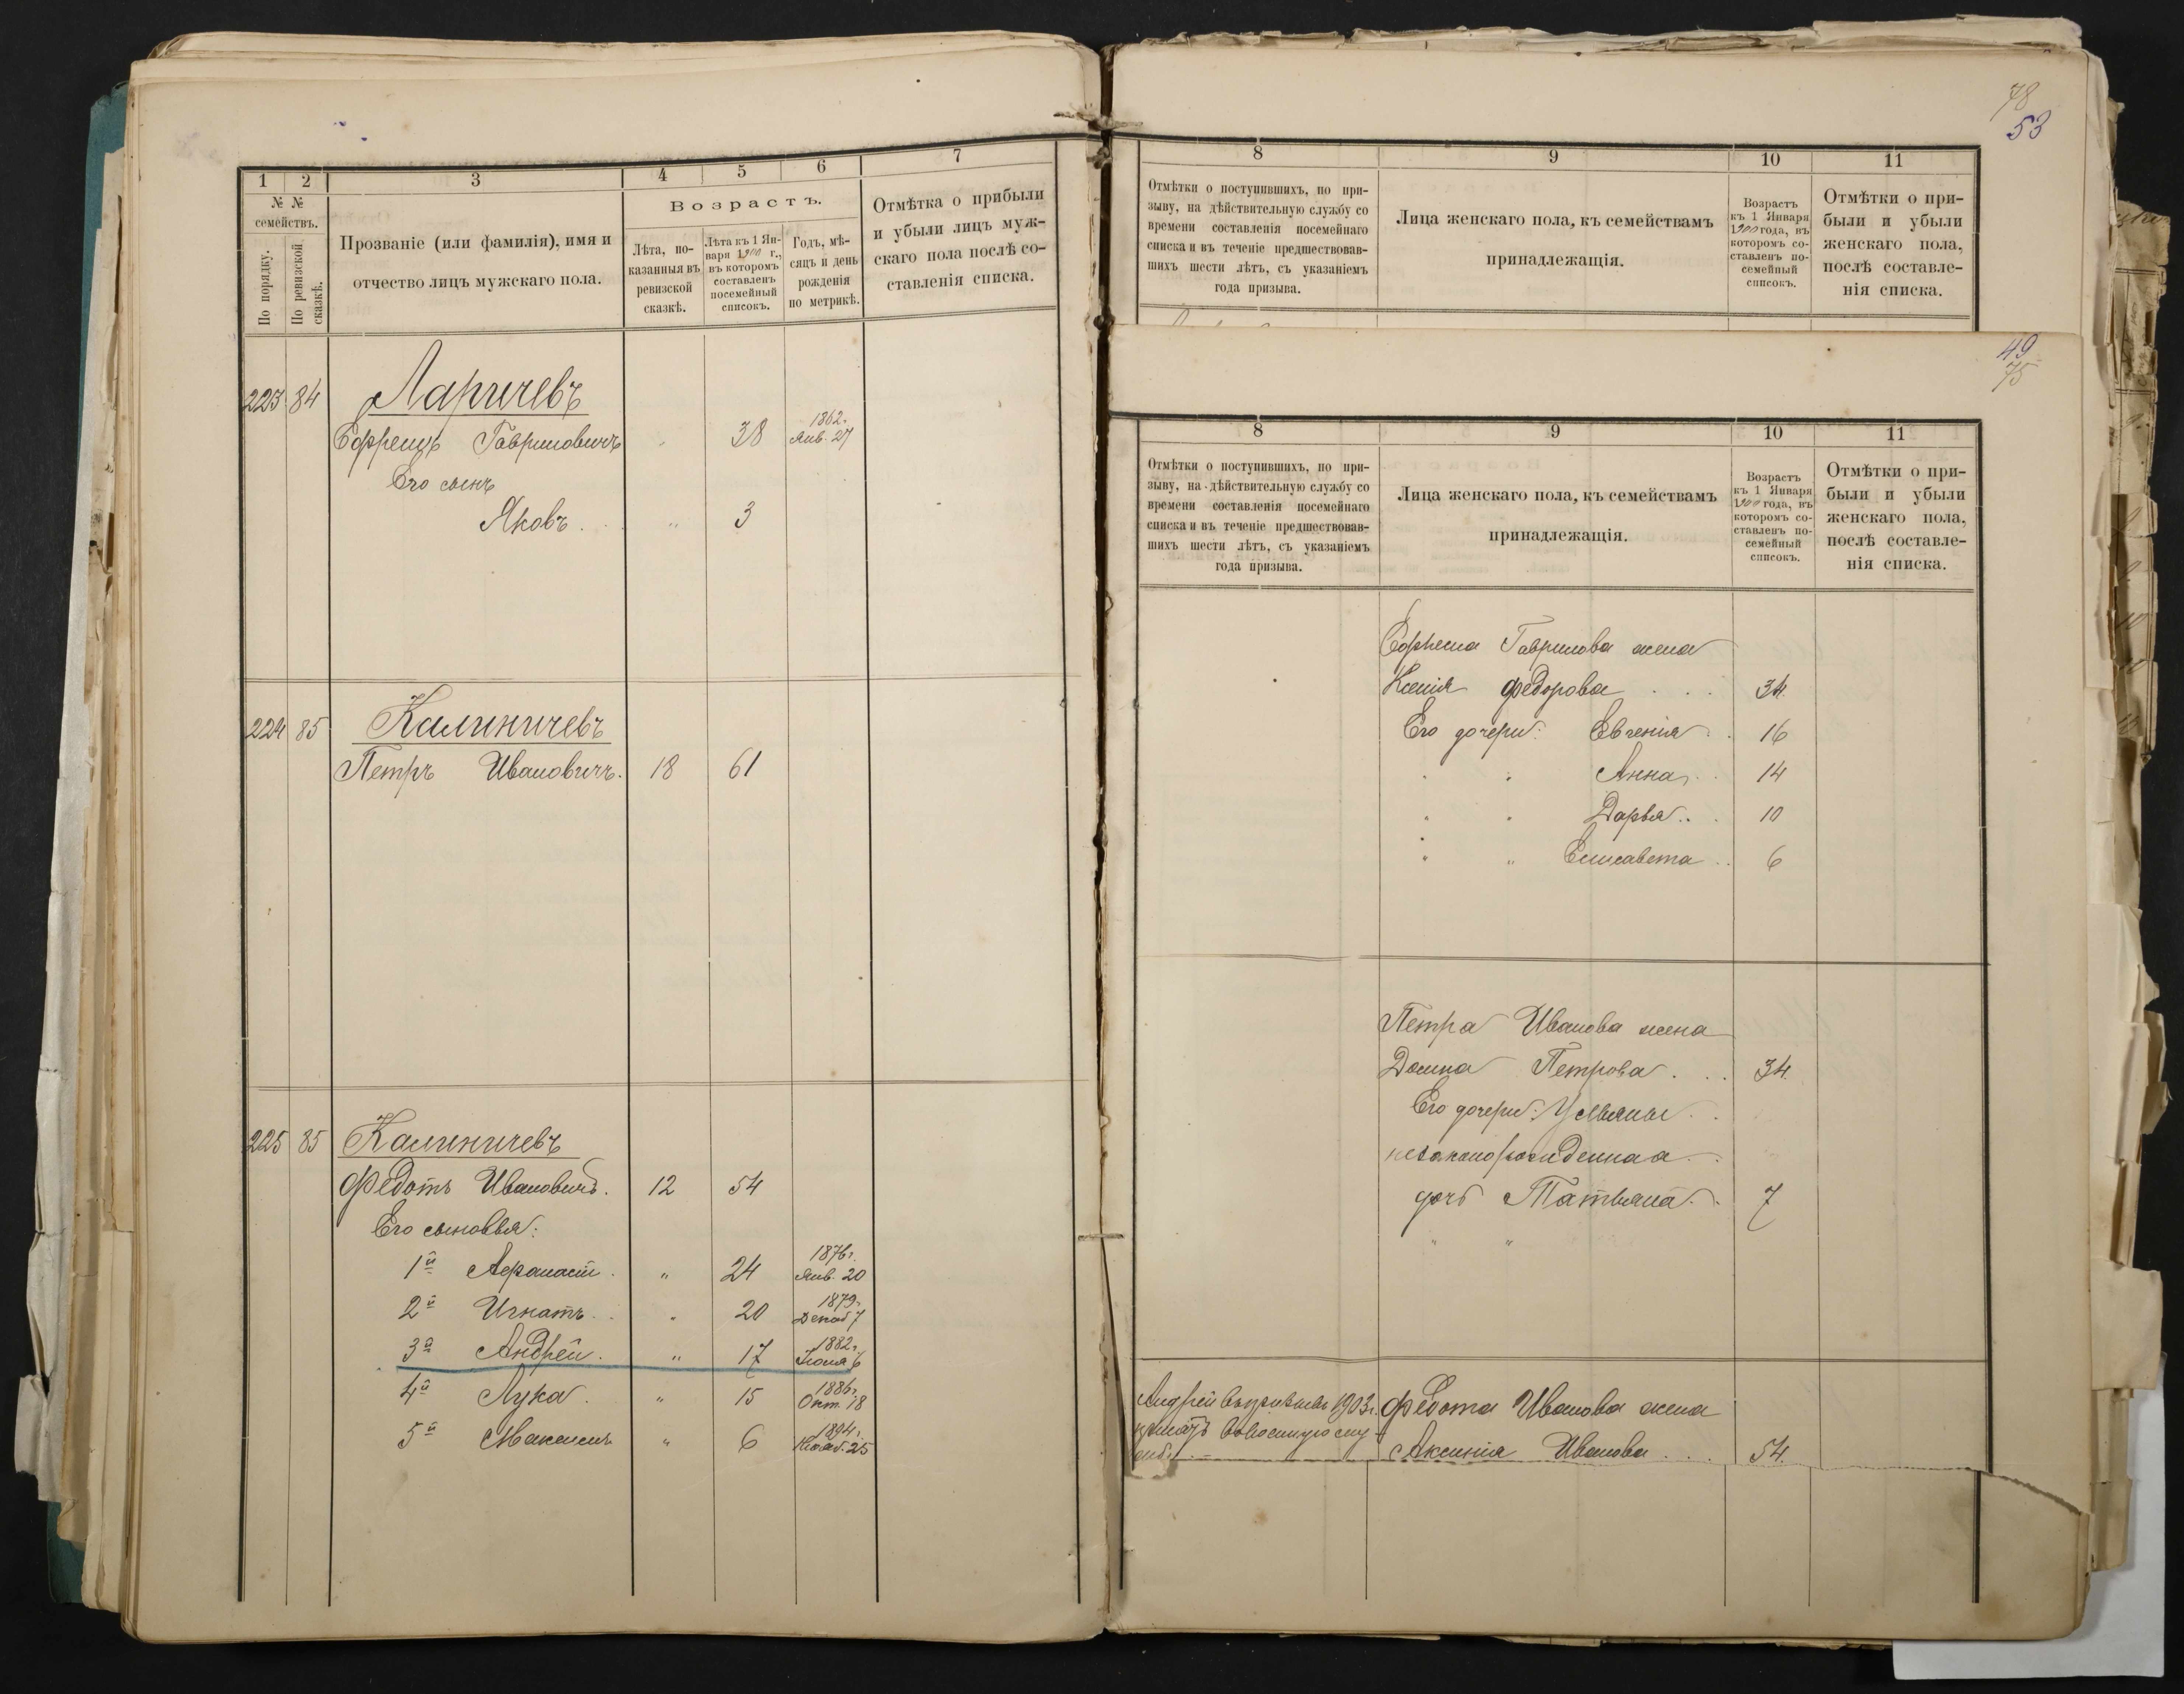 1 2 3 4 5 6 7
№ №
семействъ.
По порядку.
По ревизской сказкѣ.
Прозваніе (или фамилія), имя и
отчество лицъ мужскаго пола.
Возрастъ.
Лѣта, по-
казанныя въ
ревизской
сказкѣ.
Лѣта къ 1 Ян-
варя 1900 г.,
въ которомъ
составленъ
посемейный
списокъ.
Годъ, мѣ-
сяцъ и день
рожденія
по метрикѣ.
Отмѣтка о прибыли
и убыли лицъ муж-
скаго пола послѣ со-
ставленія списка.
223 84 Ларичевъ
Ефремъ Гавриловичъ " 38 1862 г. Янв. 27
Его сынъ
Яковъ . " 3
224 85 Калиничевъ
Петръ Ивановичъ. 18 61
225 85 Калиничевъ
Федотъ Ивановичъ. 12 54
Его сыновья:
1й Афанасій . " 24 1876 г. Янв. 20
2й Игнатъ . . " 20 1879 г. Декаб 7
3й Андрей . " 17 1882 г. Іюля 6
4й Лука . " 15 1886 г. Окт. 18
5й Максимъ " 6 1894 г. 25
78
53
8 9 10 11
Отмѣтки о поступившихъ, по при-
зыву, на дѣйствительную службу со
времени составленія посемейнаго
списка и въ теченіе предшествовав-
шихъ шести лѣтъ, съ указаніемъ
года призыва.
Лица женскаго пола, къ семействамъ
принадлежащія.
Возрастъ
къ 1 Января
1900 года, въ
которомъ со-
ставленъ по-
семейный
списокъ.
Отмѣтки о при-
были и убыли
женскаго пола,
послѣ составле-
нія списка.
49
75
8 9 10 11
Отмѣтки о поступившихъ, по при-
зыву, на дѣйствительную службу со
времени составленія посемейнаго
списка и въ теченіе предшествовав-
шихъ шести лѣтъ, съ указаніемъ
года призыва.
Лица женскаго пола, къ семействамъ
принадлежащія.
Возрастъ
къ 1 Января
1900 года, въ
которомъ со-
ставленъ по-
семейный
списокъ.
Отмѣтки о при-
были и убыли
женскаго пола,
послѣ составле-
нія списка.
Ефрема Гаврилова жена
Ксенія Федорова . . . 34.
Его дочери: Евгенія . . 16
" " Анна . . 14
" " Дарья . . . 10
" " Елисавета . . 6
Петра Иванова жена
Домна Петрова . . . 34.
Его дочери: Ульяны . .
незаконорожденная . .
дочь Татьяна . . 7
" "
Андрей въ призывъ 1903 г.
принятъ въ военную слу-
жбу. —
Федота Иванова жена
Аксинія Иванова . . . 54.